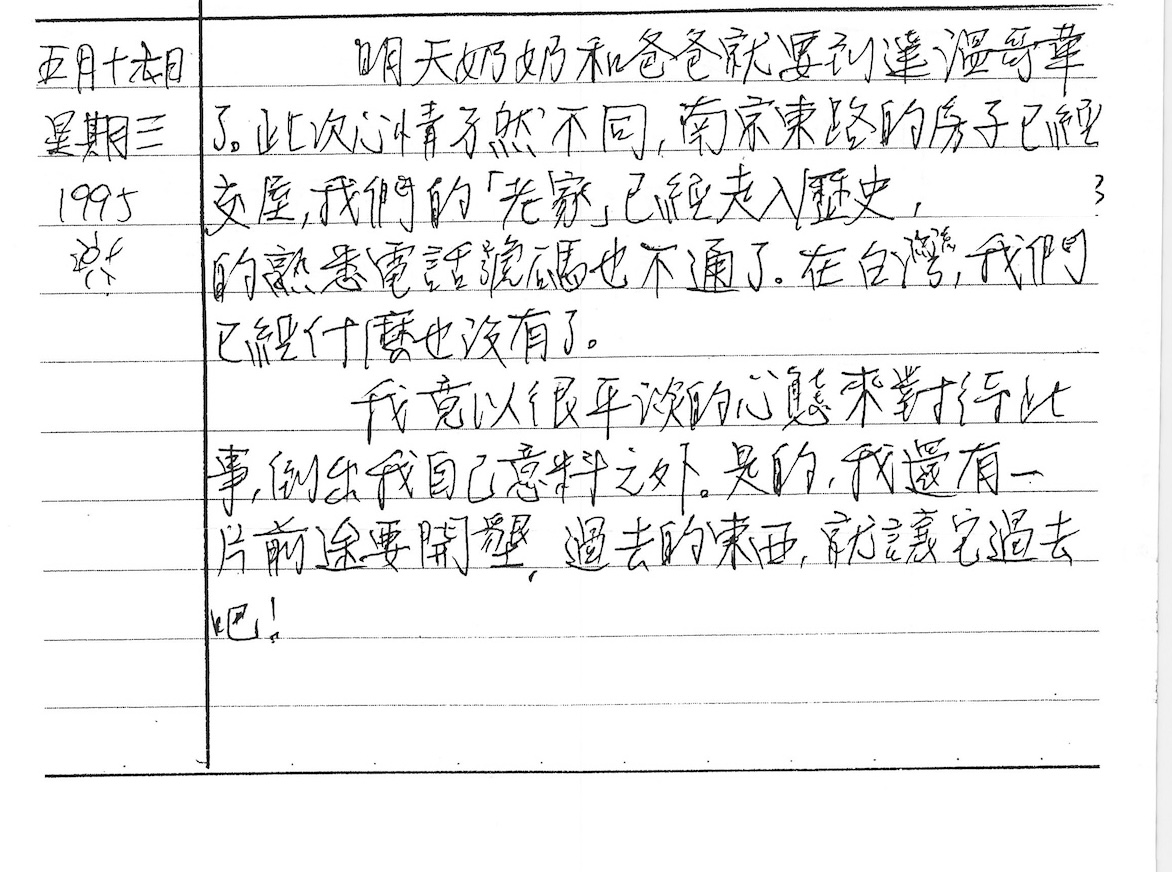 五月十六日
星期三
1995
明天奶奶和爸爸就要到達溫哥華
了。此次心情孑然不同,南京東路的房子已經
交屋,我們的「老家」已經走入歷史,
的熟悉電話號碼也不通了。在台灣,我們
已經什麼也沒有了。
我竟以很平淡的心態來對待此
事,倒出我自己意料之外。是的,我還有一
片前途要開墾,過去的東西,就讓它過去
吧!